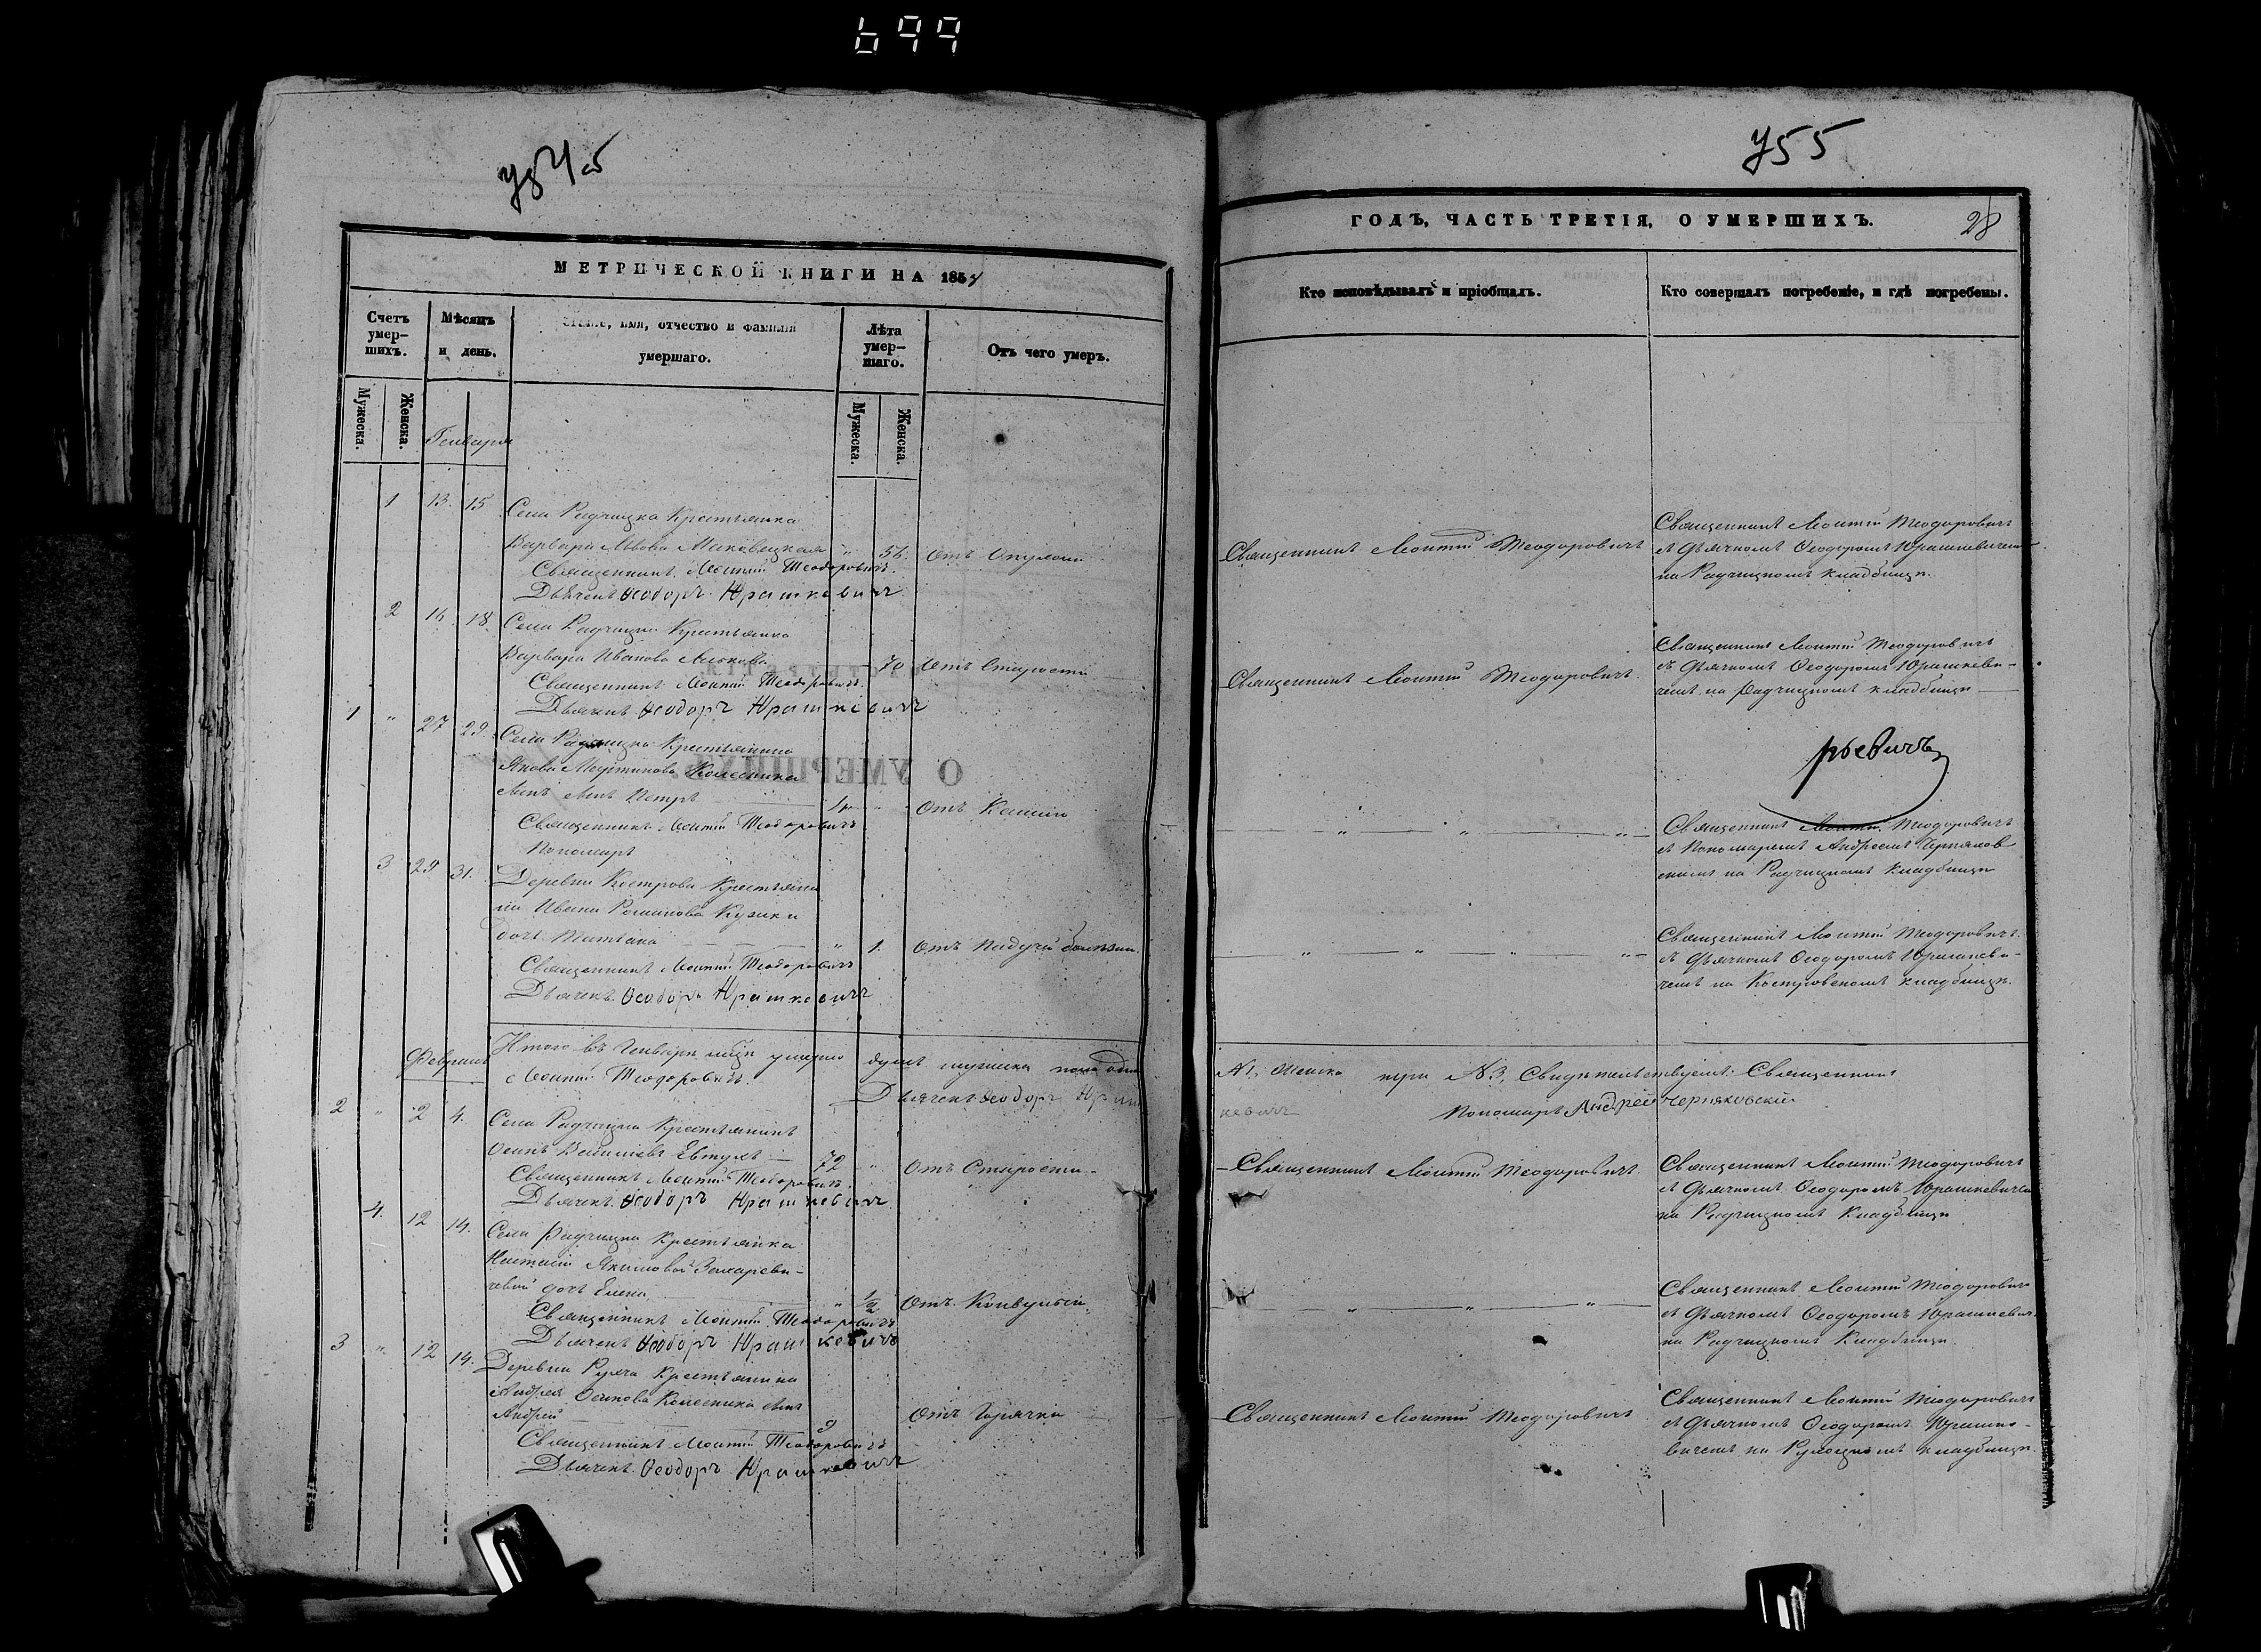 699
755
МЕТРИЧЕСКОЙ КНИГИ НА 1857
ГОДЪ, ЧАСТЬ ТРЕТІЯ, О УМЕРШИХЪ.
28
Счетъ умер-шихъ.
Мѣсяцъ и день.
имя, отчество и фамилія
умершаго.
Лѣта умер-шаго.
Отъ чего умеръ.
Кто исповѣдывалъ и пріобщалъ.
Кто совершалъ погребеніе, и гдѣ погребены.
Мужеска.
Женска.
Мужеска.
Женска.
Генваря
1 13. 15 Села Радчицка Крестьянка
Варвара Львова " Отъ
Священникъ Леонтій Теодоровичъ
Дьячекъ Ѳеодоръ Юрашкевичъ
Священникъ Леонтій Теодоровичъ
Священникъ Леонтій Теодоровичъ
съ Дьячкомъ Ѳеодоромъ Юрашкевичемъ
на Радчицкомъ кладбищѣ.
2 16. 18. Села Радчицка Крестьянка
Варвара Иванова 70 Отъ Старости
Священникъ Леонтій Теодоровичъ.
Дьячекъ Ѳеодоръ Юрашкевичъ
Священникъ Леонтій Теодоровичъ.
Священникъ Леонтій Теодоровичъ
съ Дьячкомъ Ѳеодоромъ Юрашкеви-
чемъ на Радчицкомъ кладбищѣ
1 " 27 29. Села Радчицка Крестьянина
Якова Мартинова Колесника
сынъ Петръ " Отъ Кашлю
Священникъ Леонтій Теодоровичъ
Пономаръ
рьевичъ
Священникъ Леонтій Теодоровичъ
съ Пономаремъ Андреемъ Черняков
скимъ на Радчицкомъ Кладбищѣ
3 29 31. Деревни Кострова Крестьяни
на Ивана Романова Кузики
дочь Татіана " 1. Отъ Падучей болезни.
Священникъ Леонтій Теодоровичъ
Дьячекъ Ѳеодоръ Юрашкевичъ
Священникъ Леонтій Теодоровичъ.
съ Дьячкомъ Ѳеодоромъ Юрашкеви-
чемъ на Костровскомъ кладбищѣ.
Итого въ Генварѣ умерло мужеска пола
№1, Женска №3, Свидѣтельствуемъ: Священникъ
Леонтій Теодоровичъ. Дьячекъ Ѳеодоръ Юраш
кевичъ Пономаръ Андрей Черняковскій
Февраля
2 " 2 4. Села Радчицка Крестьянинъ
Осипъ Евтухъ 72 " Отъ Старости
Священникъ Леонтій Теодоровичъ.
Дьячекъ Ѳеодоръ Юрашкевичъ
Священникъ Леонтій Теодоровичъ.
Священникъ Леонтій Теодоровичъ
съ Дьячкомъ Ѳеодоромъ Юрашкевичемъ
на Радчицкомъ Кладбищѣ
4. 12 14. Села Радчицка Крестьянка
Настасіи Якимовой Захареви-
чевой дочь Елена " 1/2 Отъ Конвульсій.
Священникъ Леонтій Теодоровичъ
Дьячекъ Ѳеодоръ Юрашкевичъ
Священникъ Леонтій Теодоровичъ
съ Дьячкомъ Ѳеодоромъ Юрашкевич.
на Радчицкомъ Кладбищѣ.
3 " 12 14. Деревни Крестьянина
Андрея Осипова Колесника сынъ
Андрей 9 Отъ Горячки
Священникъ Леонтій Теодоровичъ
Дьячекъ Ѳеодоръ Юрашкевичъ
Священникъ Леонтій Теодоровичъ
Священникъ Леонтій Теодоровичъ
съ Дьячкомъ Ѳеодоромъ Юрашке-
вичемъ на кладбищѣ.